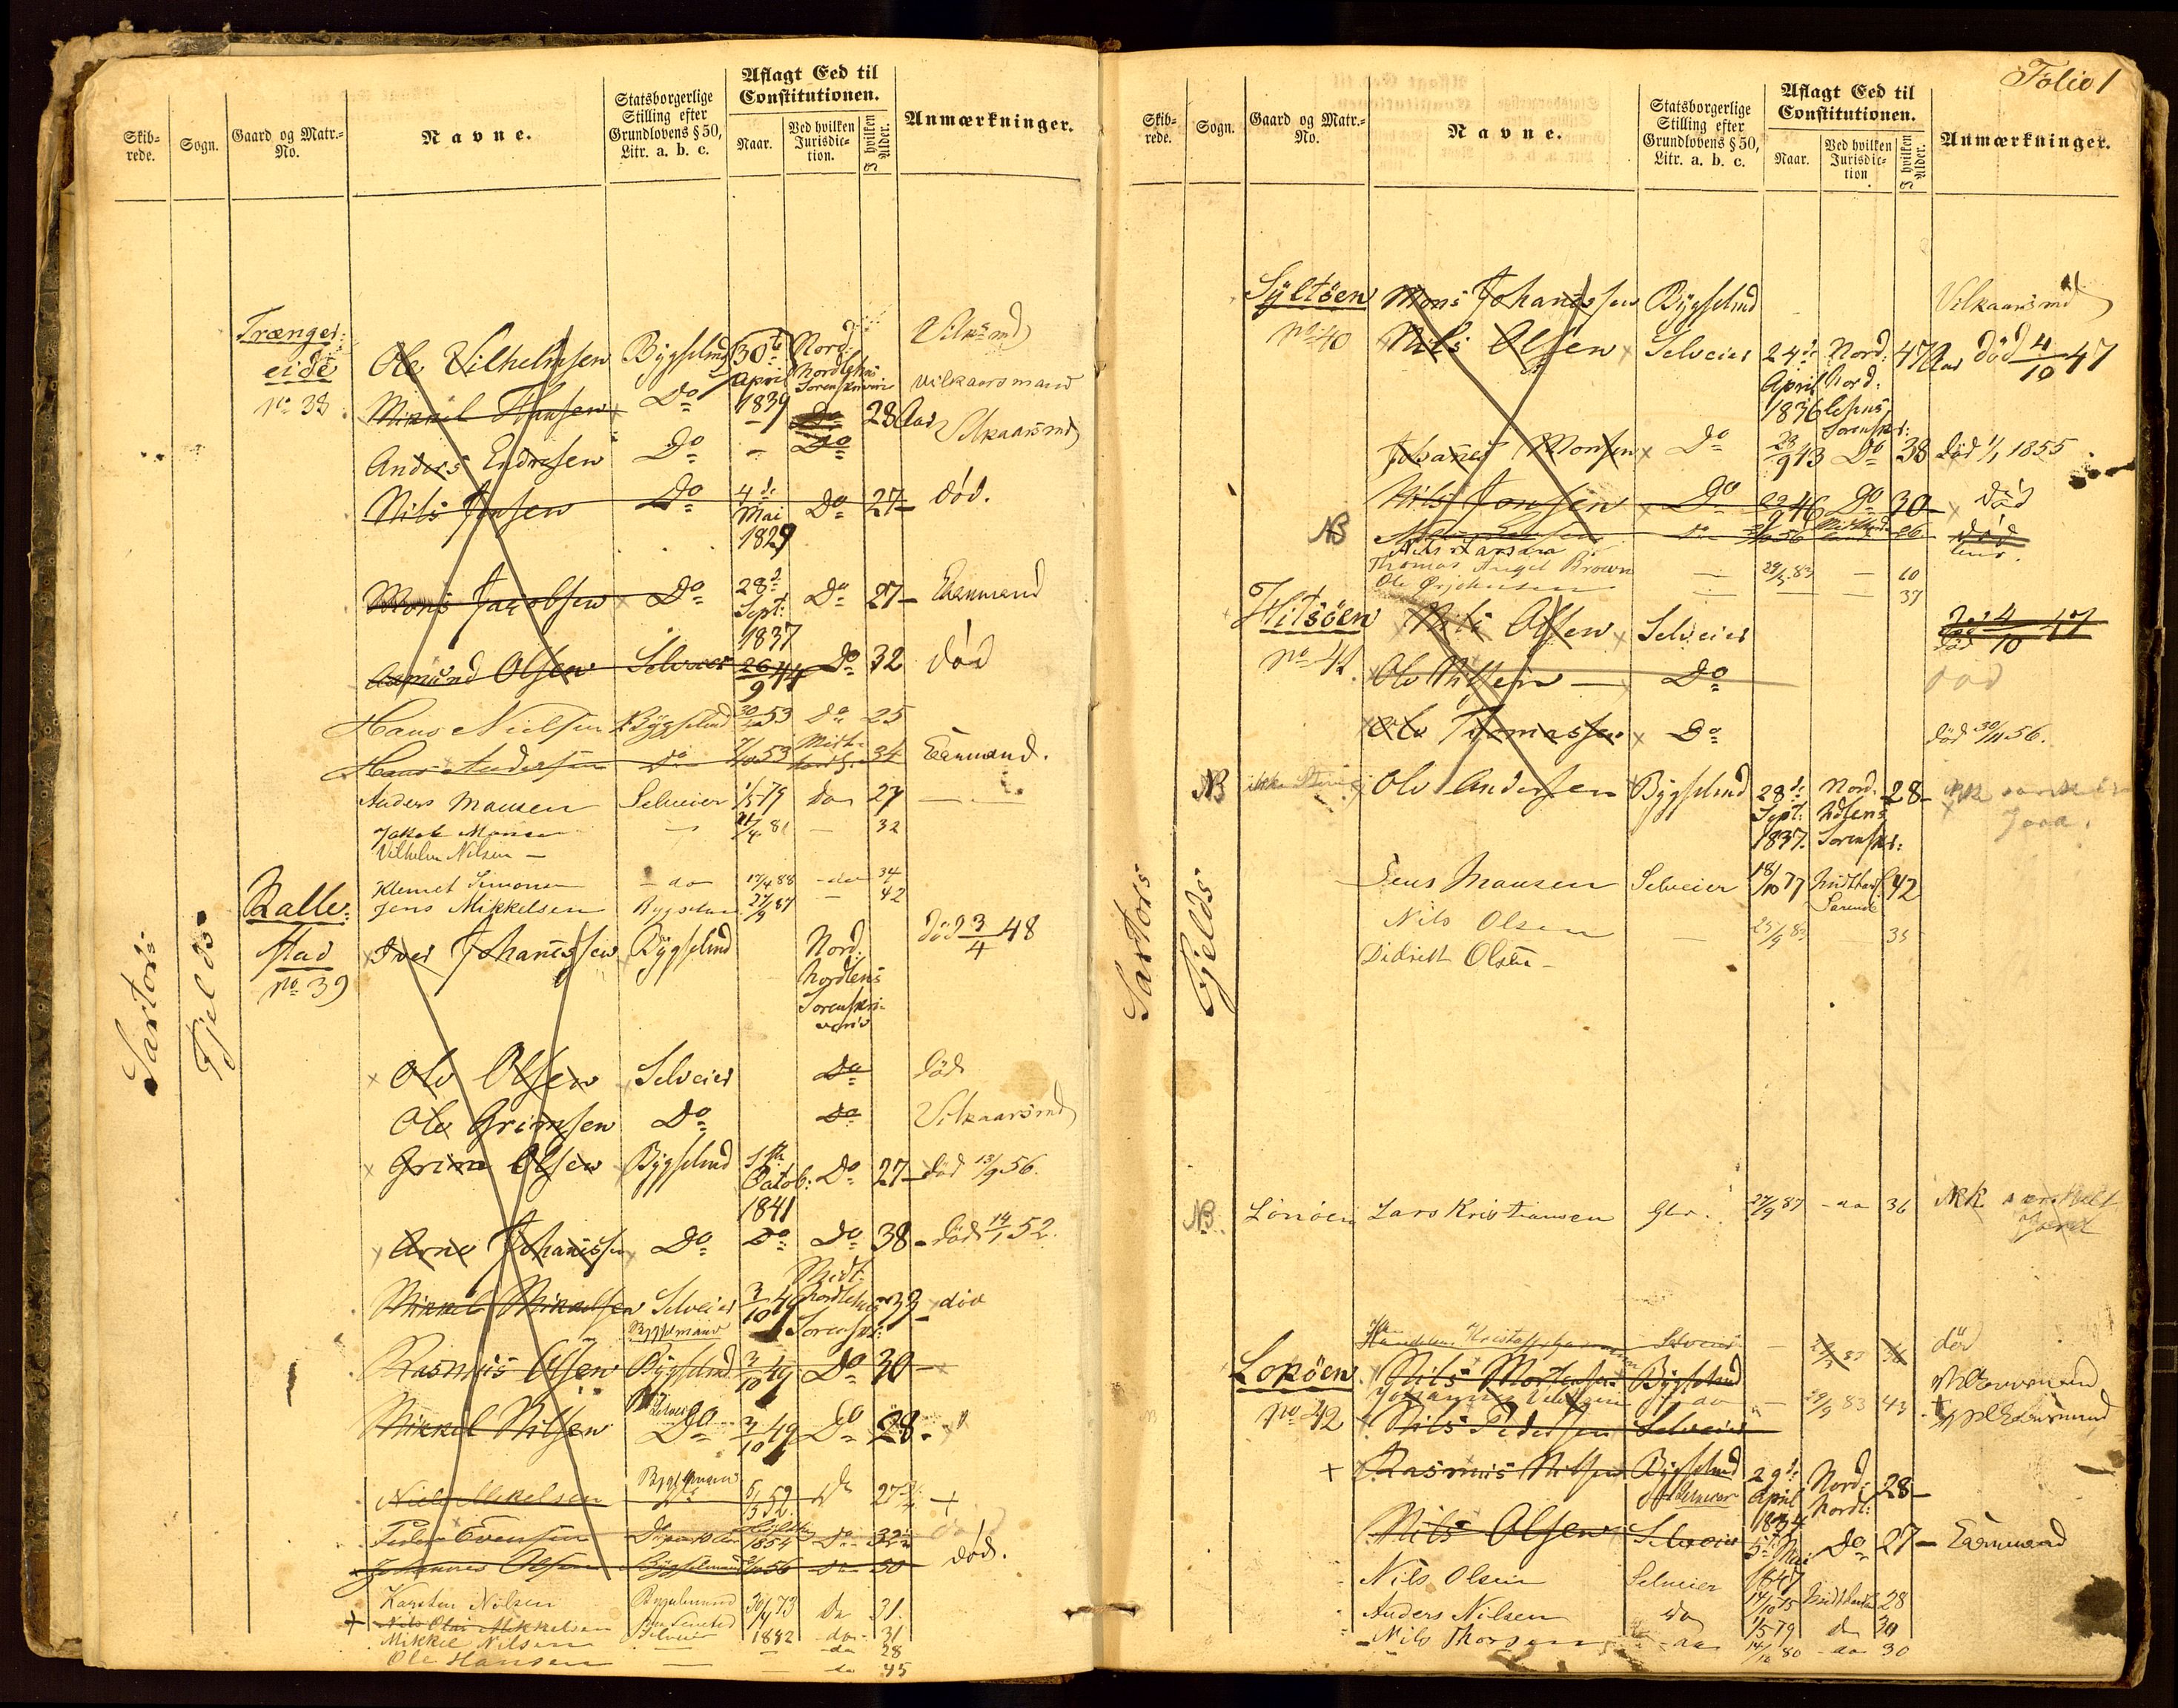 Skib-
rede.
Sogn.
Gaard og Matr.-
No.
Navne.
Statsborgerlige
Stilling efter
Grundlovens § 50,
Litr. a. b. c.
Aflagt Eed til
Constitutionen.
Naar.
Ved hvilken
Jurisdic-
tion.
I hvilken
Alder.
Anmærkninger.
Sartors
Fjelds
Trænger-
eide
No 38
Ole Vilhelmsen Bygselmd 30te April 1839 Nord- Nordlehns Sorenskriveri Vilksmd
Mikkel Hansen Do 28 Aar Vilkaarsmand
Anders Endresen Do - Do Vilkaarsmd
Nils Jensen Do 4de Mai 1829 Do 27 - død.
Mons Jacobsen Do 28de Sept: 1837 Do 27 -
Aamund Olsen Selveier 26/9 44 Do 32 død
Hans Nielsen Bygselmd 53 Do 25
Hans Andersen do 53 34
Anders Mausen Selveier 1/5 79 do 27
Jakob Monsen - 81 - 32
Vilhelm Nilsen -
Klemet Simonsen - do 17/4 88 - do 34
Jens Mikkelsen 27/9 87 - 42
Ralle-
stad
No 39
Iver Johannessen Bygselmd Nord- Nordlens Sorenskriveri død 3/4 48
Ole Olsen Selveier Do død
Ole Grimsen Do Do Vilkaarsmd
Grim Olsen Bygselmd 1ste Octob: 1841 Do 27 - død 13/9 56.
Arne Johannissen Do Do Do 38 - død 14/1 52.
Mikkel Mikkelsen Selveier 3/10 49 Midt- Nordlehns Sorenskr: 33 død
Bygselmand
Rasmus Olsen Bygselmd 3/10 49 Do 30 -
Mikkel Nilsen Do 3/10 49 Do 28 -
Niels Mikelsen 52 do 27 +
Peder Evensen 1854 Do 32
Johannes Olsen Bygselmand 56 do 30 død.
Karsten Nilsen Bygselmand 30/4 73 Do 31.
+ Nils Olai Mikkelsen Selveier 1882 do 31
Mikkel Nilsen - - do 28
Ole Hansen - - do 45
Folio 1
Skib-
rede.
Sogn.
Gaard og Matr.-
No.
Navne.
Statsborgerlige
Stilling efter
Grundlovens § 50,
Litr. a. b. c.
Aflagt Eed til
Constitutionen.
Naar.
Ved hvilken
Jurisdic-
tion
I hvilken
Alder.
Anmærkninger.
Sartors
Fjelds
Syltöen
No 40
Mons Johannessen Bygselmd Vilkaarsmd
Nils Olsen Selveier 24de April 1836 Nord- Nord- lehns Sorenskr: 47 Aar død 4/10 47
Johanes Monsen Do 23/9 43 Do 38 død 1/1 1855
Nils Jonsen Do 22/9 46 Do 30 - død
NB do 56 26 død
Nils Larsen
Thomas Angel Brown - 29/3 83 - 60
Ole - - - 37
Hitsöen
No 41.
Nils Olsen Selveier død 4/10 47
Ole Nilsen - Do død
Ole Thomassen Do død 30/11 56.
NB Ole Andersen Bygselmd 28de Sept: 1837. Nord- Nordlens Sorenskr: 28 -
Jens Mausen Selveier 18/10 77 Midthord Sorensk 42
Nils Olsen - 25/9 83 - 35
Didrik Olsen -
NB Lönöen Lars Kristiansen Gbr. 27/9 87 - do 36 særskilt Jord
Loköen
No 42
Selveier - 83 36 død
Nils Mortensen Bygselmd
Johannes do - 29/3 83 43
Nils Pedersen Selveier
+ Rasmus Nilsen Bygselmd 29de April 1834 Nord- Nordl: 28 -
Selveier
Nils Olsen Selveier 5te Mai 1847 Do 27 -
Nils Olsen Selveier 14/10 75 Midthordl 28
Anders Nilsen do 1/5 79 do 30
Nils Thorsen do 14/10 80 - do 30